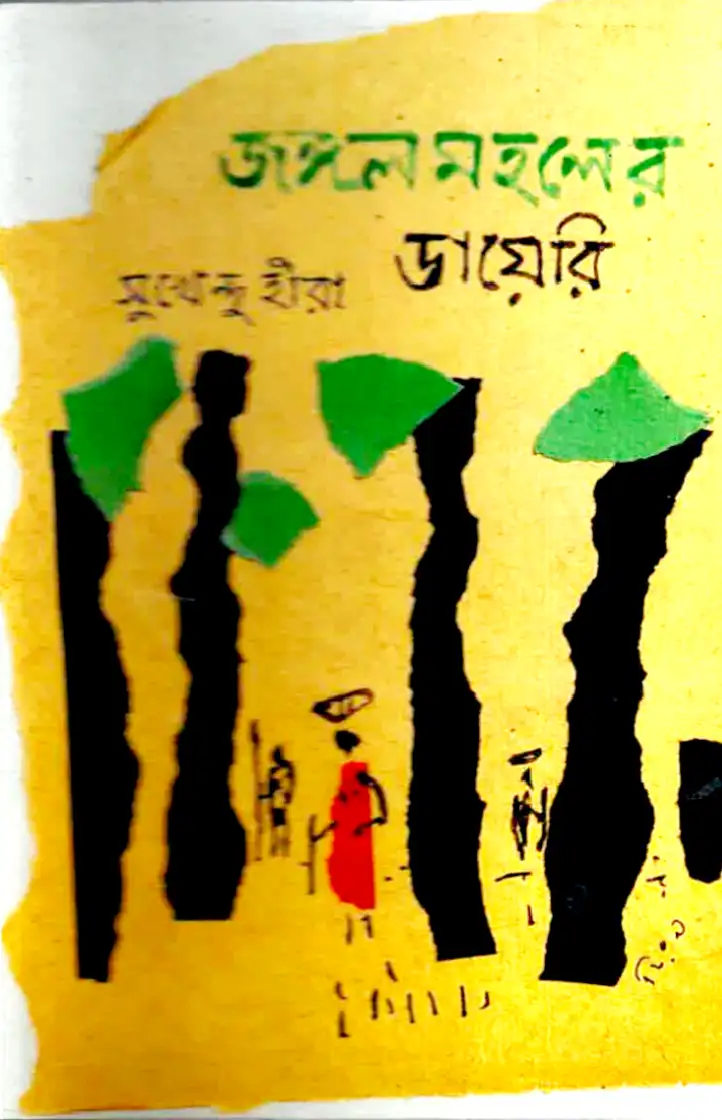 জঙ্গলমহলের
ডায়েরি
সুখেন্দু হীরা